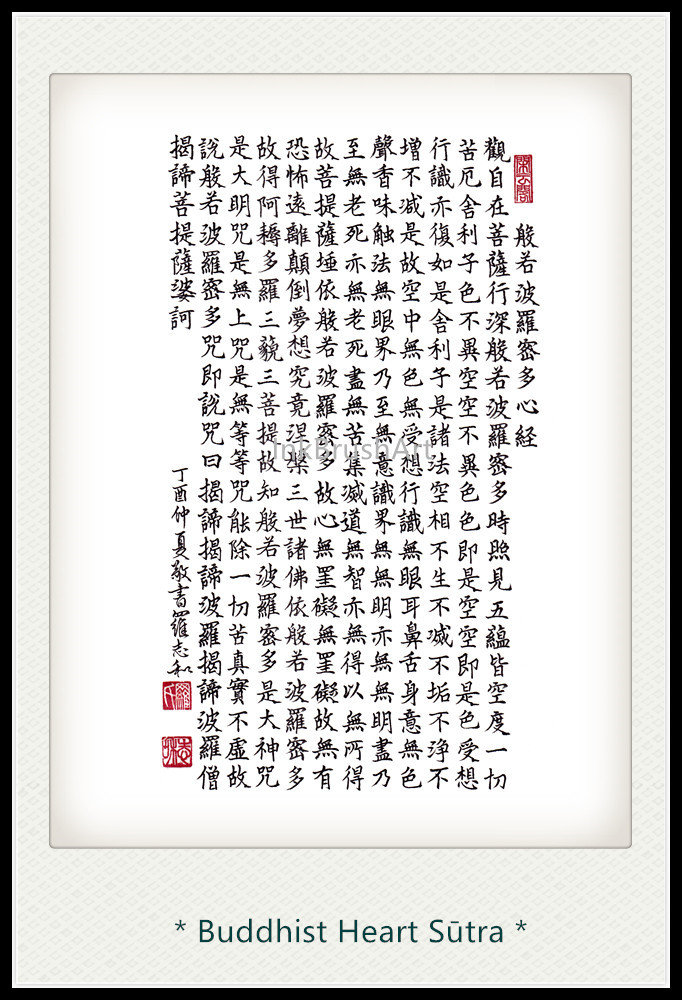 般若波羅密多心経
觀自在菩薩行深般若波羅密多時照見五蘊皆空度一切
苦厄舍利子色不異空空不異色色即是空空即是色受想
行識亦復如是舍利子是諸法空相不生不滅不垢不淨不
增不減是故空中無色無受想行識無眼耳鼻舌身意無色
聲香味触法無眼界乃至無意識界無無明亦無無明盡乃
至無老死亦無老死盡無苦集滅道無智亦無得以無所得
故菩提薩埵依般若波羅密多故心無罣礙無罣礙故無有
恐怖遠離顛倒夢想究竟涅槃三世諸佛依般若波羅密多
故得阿耨多羅三藐三菩提故知般若波羅密多是大神咒
是大明咒是無上咒是無等等咒能除一切苦真實不虛故
說般若波羅密多咒即說咒曰揭諦揭諦波羅揭諦波羅僧
揭諦菩提薩婆訶
丁酉仲夏敬書羅志和
InkBrushArt
* Buddhist Heart Sūtra *